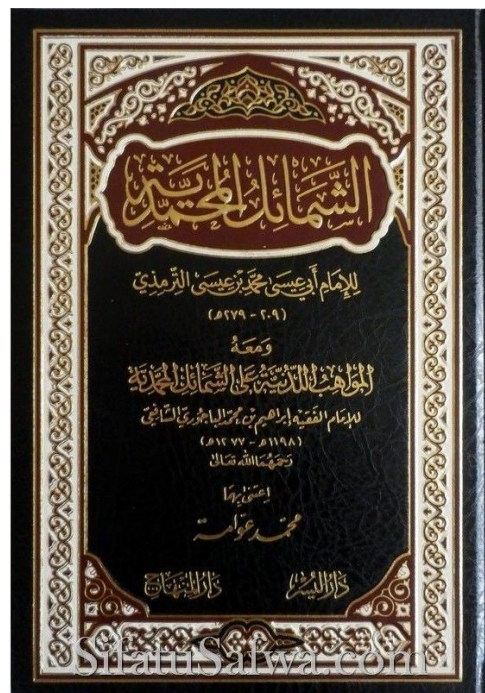 الشَّمَائِلُ المُحَمَّدِيَّة
لِلإِمَامِ أَبِي عِيسَى مُحَمَّدِ بْنِ عِيسَى التِّرْمِذِيِّ
(٢٠٩ - ٢٧٩ھ)
وَمَعَهُ
المَوَاهِبُ اللَّدُنِيَّة عَلَى الشَّمَائِلِ المُحَمَّدِيَّة
لِلإِمَامِ الفَقِيهِ إِبْرَاهِيم بْن مُحَمَّد البَاجُورِي الشَّافِعِي
(١١٩٨ھ - ١٢٧٧ھ)
رَحِمَهُمَا اللهُ تَعَالَى
اعْتَنَى بِهِمَا
مُحَمَّد عَوَّامَة
دَارُ اليُسْر دَارُ المِنْهَاج
SifatuSafwa.com